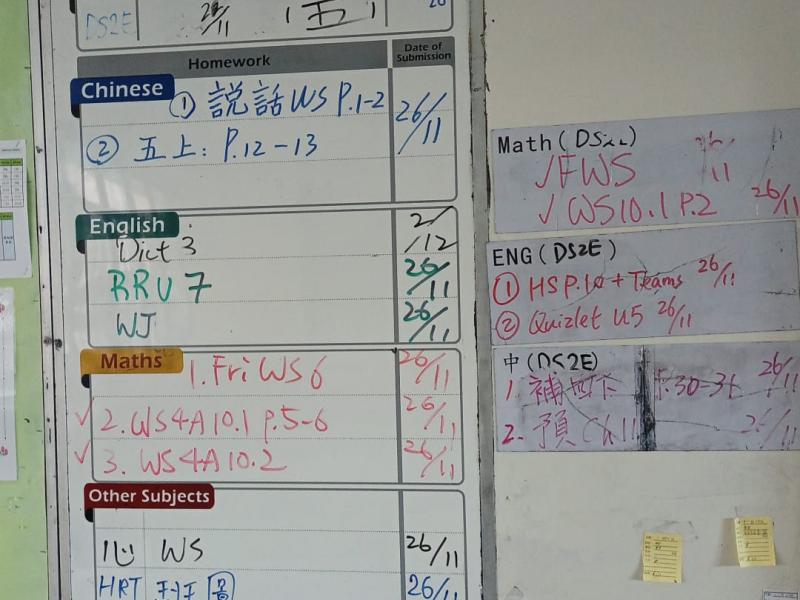 DS2E 五
Homework Date of Submission
Chinese
① 説話WS P.1-2 26/11
② 五上: P.12-13
English
Dict 3 2/12
RRU 7 26/11
WJ 26/11
Maths
1. Fri WS 6 26/11
✓ 2. WS4A 10.1 p.5-6 26/11
✓ 3. WS4A 10.2 26/11
Other Subjects
心 WS 26/11
HRT 26/11
Math (
✓ FWS 11
✓ WS10.1 P.2 26/11
ENG (DS2E)
① HS P.10 + Teams 26/11
② Quizlet U5 26/11
中 (DS2E)
1. 補 26/11
2. 預